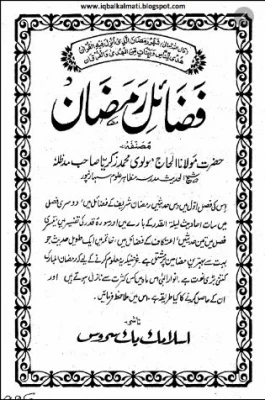 www.iqbalkalmati.blogspot.com
فضائل رمضان
مصنفہ
حضرت مولانا الحاج مولوی محمد زکریا صاحب مدظلہ
شیخ الحدیث مدرسہ مظاہر علوم سہارنپور
اس کی فصل اول میں دس حدیثیں رمضان شریف کے فضائل میں، دوسری فصل
میں سات احادیث لیلۃ القدر کے بارے میں اور سورہ قدر کی تفسیر ہے، تیسری
فصل میں تین حدیثیں اعتکاف کے فضائل میں، خاتمہ میں ایک طویل حدیث جو
بہت سے بہترین مضامین پر مشتمل ہے
کتنی بڑی نعمت ہے، انوار الٰہی اس ماہ میں کس کثرت سے نازل ہوتے ہیں اور
ان کے حاصل کرنے کا کیا طریقہ ہے، اس میں ملاحظہ فرمائیں۔
ناشر
اسلامک بک سروس